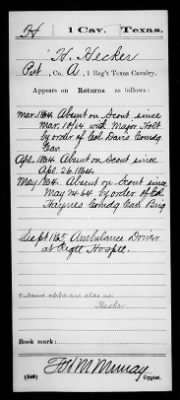 H 1 Cav. Texas.
H. Hecker
Pvt, Co. A, 1 Reg't Texas Cavalry.
Appears on
Returns as follows:
Mar. 1864. Absent on Scout since
Mar. 10/64 with Major Holt
by order of Col. Davis Comdg
Cav.
Apl. 1864. Absent on Scout since
Apl. 26. 1864.
May 1864. Absent on Scout since
May 24. 64 by order of Col.
Haynes Comdg Cav Brig
Sept 1865. Ambulance Driver
at Regtl Hospl.
Name appears also as:
Hecker
Book mark:
(546) Copyist.